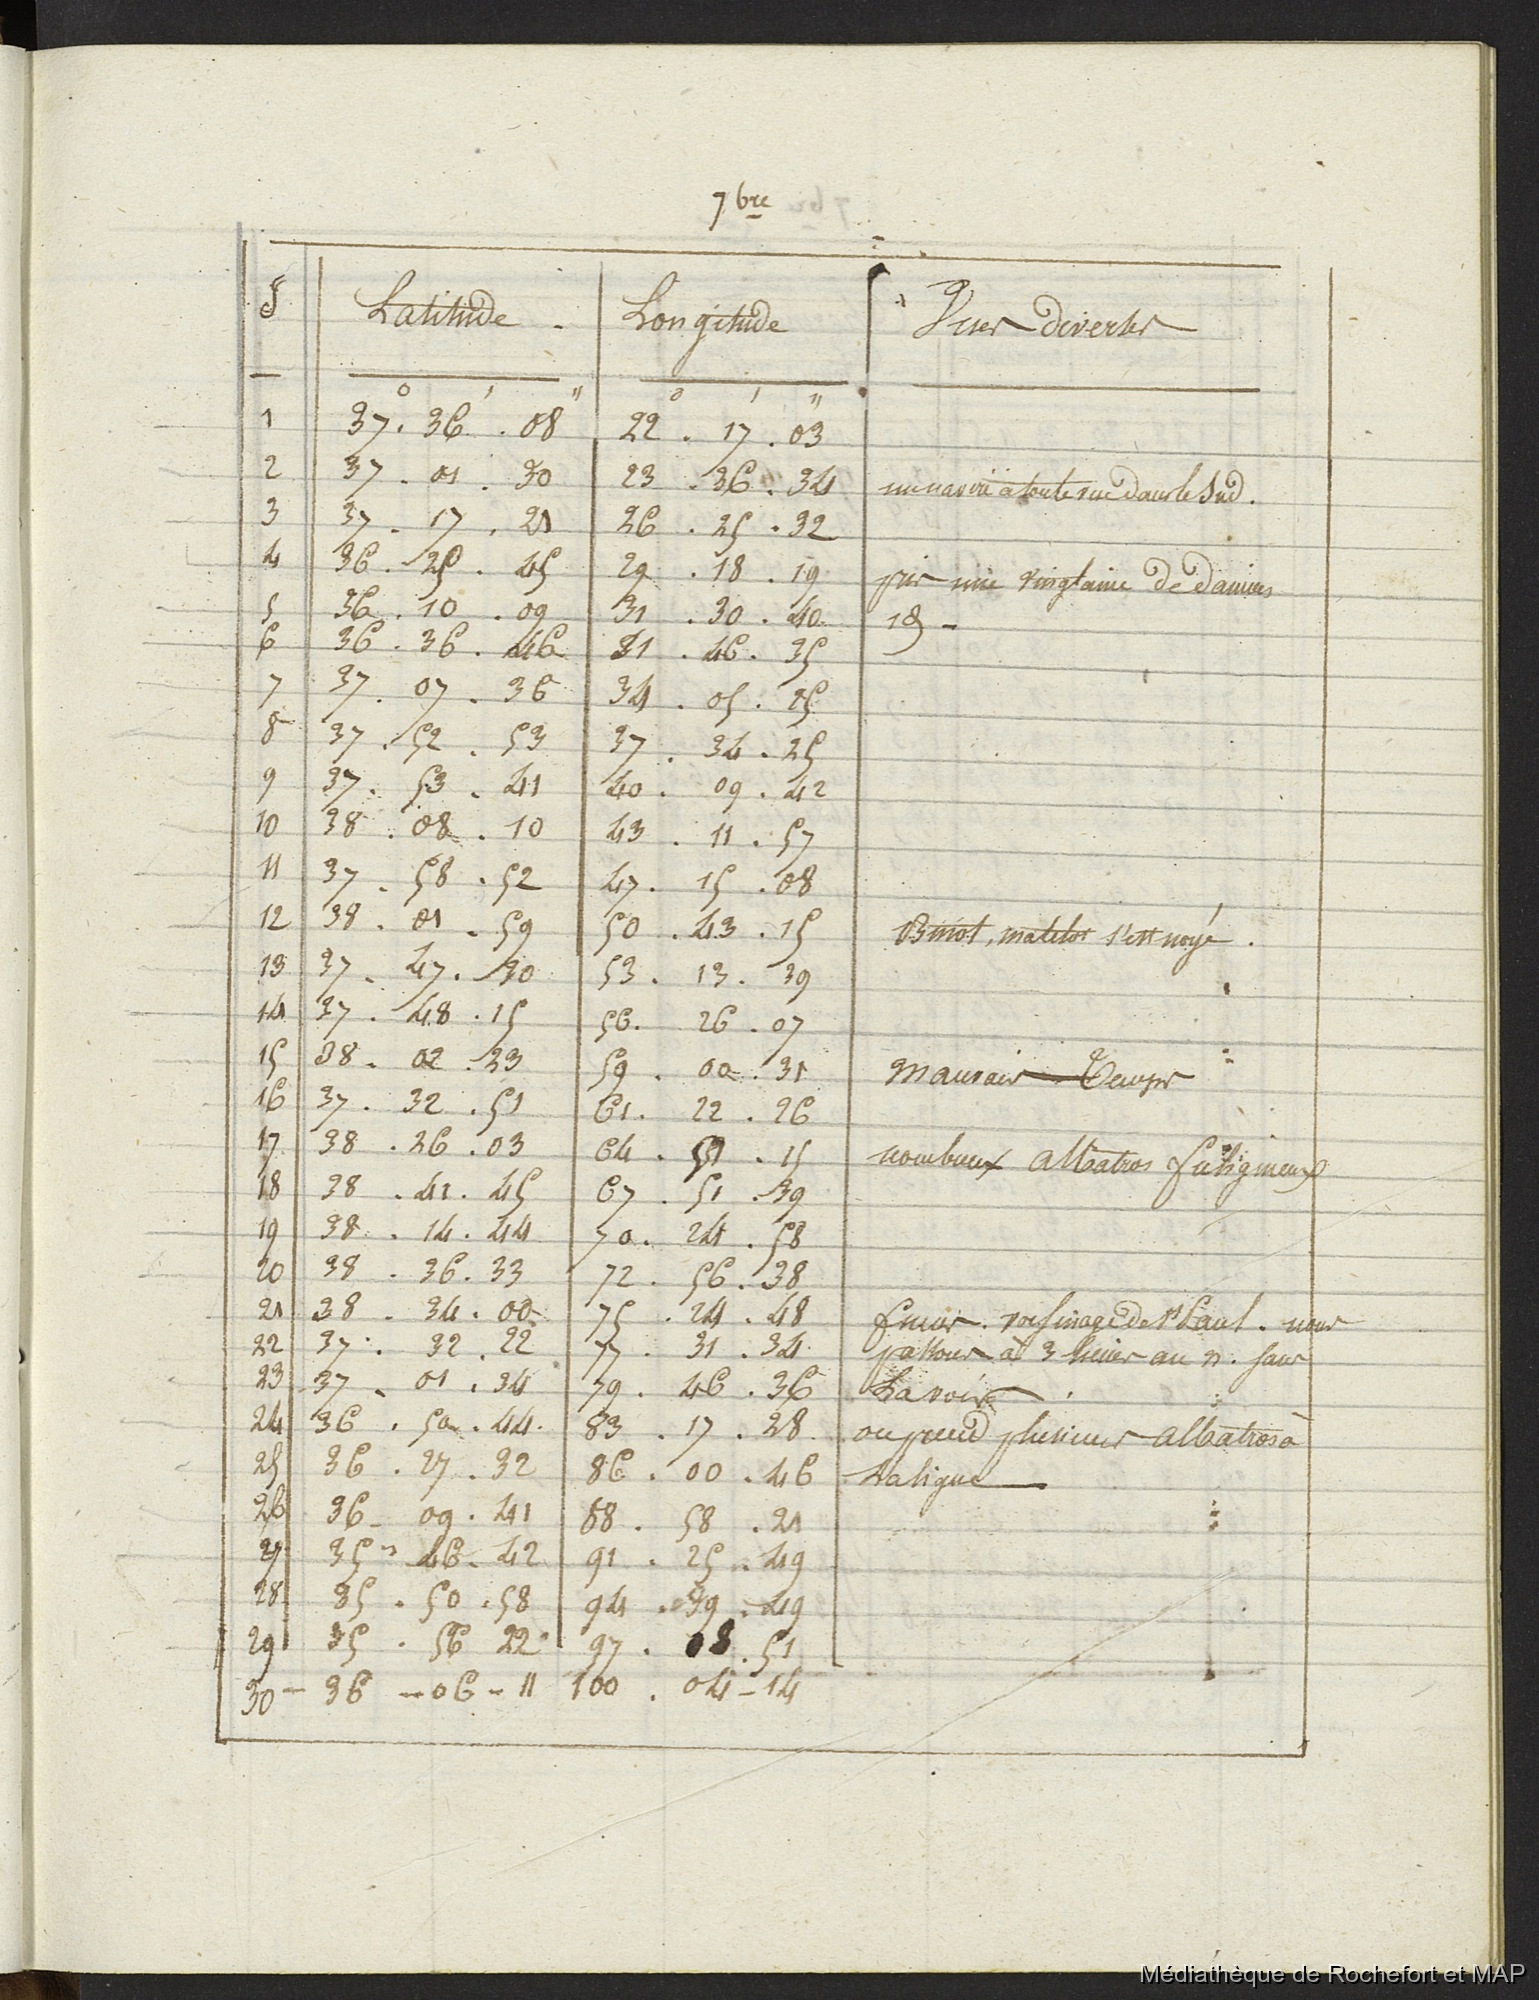 7bre
J Latitude Longitude Vues diverses
° ' " ° ' "
1 37 . 36 . 08 22 . 17 . 03
2 37 . 01 . 30 23 . 36 . 34 un navire à toute vue dans le Sud .
3 37 . 17 . 21 26 . 25 . 32
4 36 . 25 . 45 29 . 18 . 19 pris une vingtaine de damiers
5 36 . 10 . 09 31 . 30 . 40
6 36 . 36 . 46 31 . 46 . 35
7 37 . 07 . 36 34 . 05 . 25
8 37 . 52 . 53 37 . 34 . 25
9 37 . 53 . 41 40 . 09 . 42
10 38 . 08 . 10 43 . 11 . 57
11 37 . 58 . 52 47 . 15 . 08
12 38 . 01 . 59 50 . 43 . 15 Binot, matelot s'est noyé .
13 37 . 47 . 30 53 . 13 . 39
14 37 . 48 . 15 56 . 26 . 07
15 38 . 02 . 23 59 . 00 . 31 Mauvais Temps
16 37 . 32 . 51 61 . 22 . 26
17 38 . 26 . 03 64 . 51 . 15 nombreux albatros fuligineux
18 38 . 41 . 45 67 . 51 . 39
19 38 . 14 . 44 70 . 24 . 58
20 38 . 36 . 33 72 . 56 . 38
21 38 . 34 . 00 75 . 24 . 48 . voisinage de St Paul . nous
22 37 . 32 . 22 77 . 31 . 34 passons à 3 lieues au n . sans
23 37 . 01 . 34 79 . 46 . 36 la voir .
24 36 . 50 . 44 83 . 17 . 28 on prend plusieurs albatros à
25 36 . 27 . 32 86 . 00 . 46 la ligne
26 36 . 09 . 41 88 . 58 . 21
27 35 . 46 . 42 91 . 25 . 49
28 35 . 50 . 58 94 . 39 . 49
29 35 . 56 22 97 . 08 . 51
30 - 36 - 06 - 11 100 . 04 - 14
Médiathèque de Rochefort et MAP